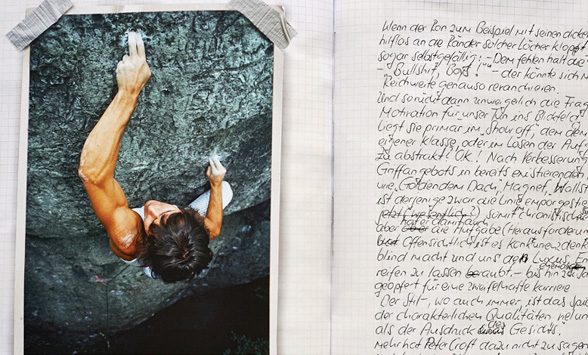 Wenn der Ron zum Beispiel mit seinen dicken
hilflos an die Ränder solcher Löcher klopft
sogar selbstgefällig: - Dem fehlt halt die
"Bullshit, Boys!" - der könnte sich
Reichweite genauso revanchieren.
Und so rückt dann unweigerlich die Frage
Motivation für unser Tun ins Blickfeld
liegt sie primär im show off, dem dem
eigener Klasse, oder im Lösen der Auf
zu abstrakt? OK! Nach Verbesserung
Griffangebots in bereits existierenden
wie Goldenem Dach, Magnet, Wallst
ist derjenige zwar die Linie emporgestie
somit chronistisch
aber die Aufgabe (Herausforderung
Offensichtlich ist es Konkurrenzdenk
blind macht und uns den Luxus
reifen zu lassen beraubt. - bis hin zu
geopfert für eine zweifelhafte Karriere
Der Stil -, wo auch immer, ist das Spie
der charakterlichen Qualitäten
als der Ausdruck des Gesichts.
Mehr hat Peter Croft dazu nicht zu sagen